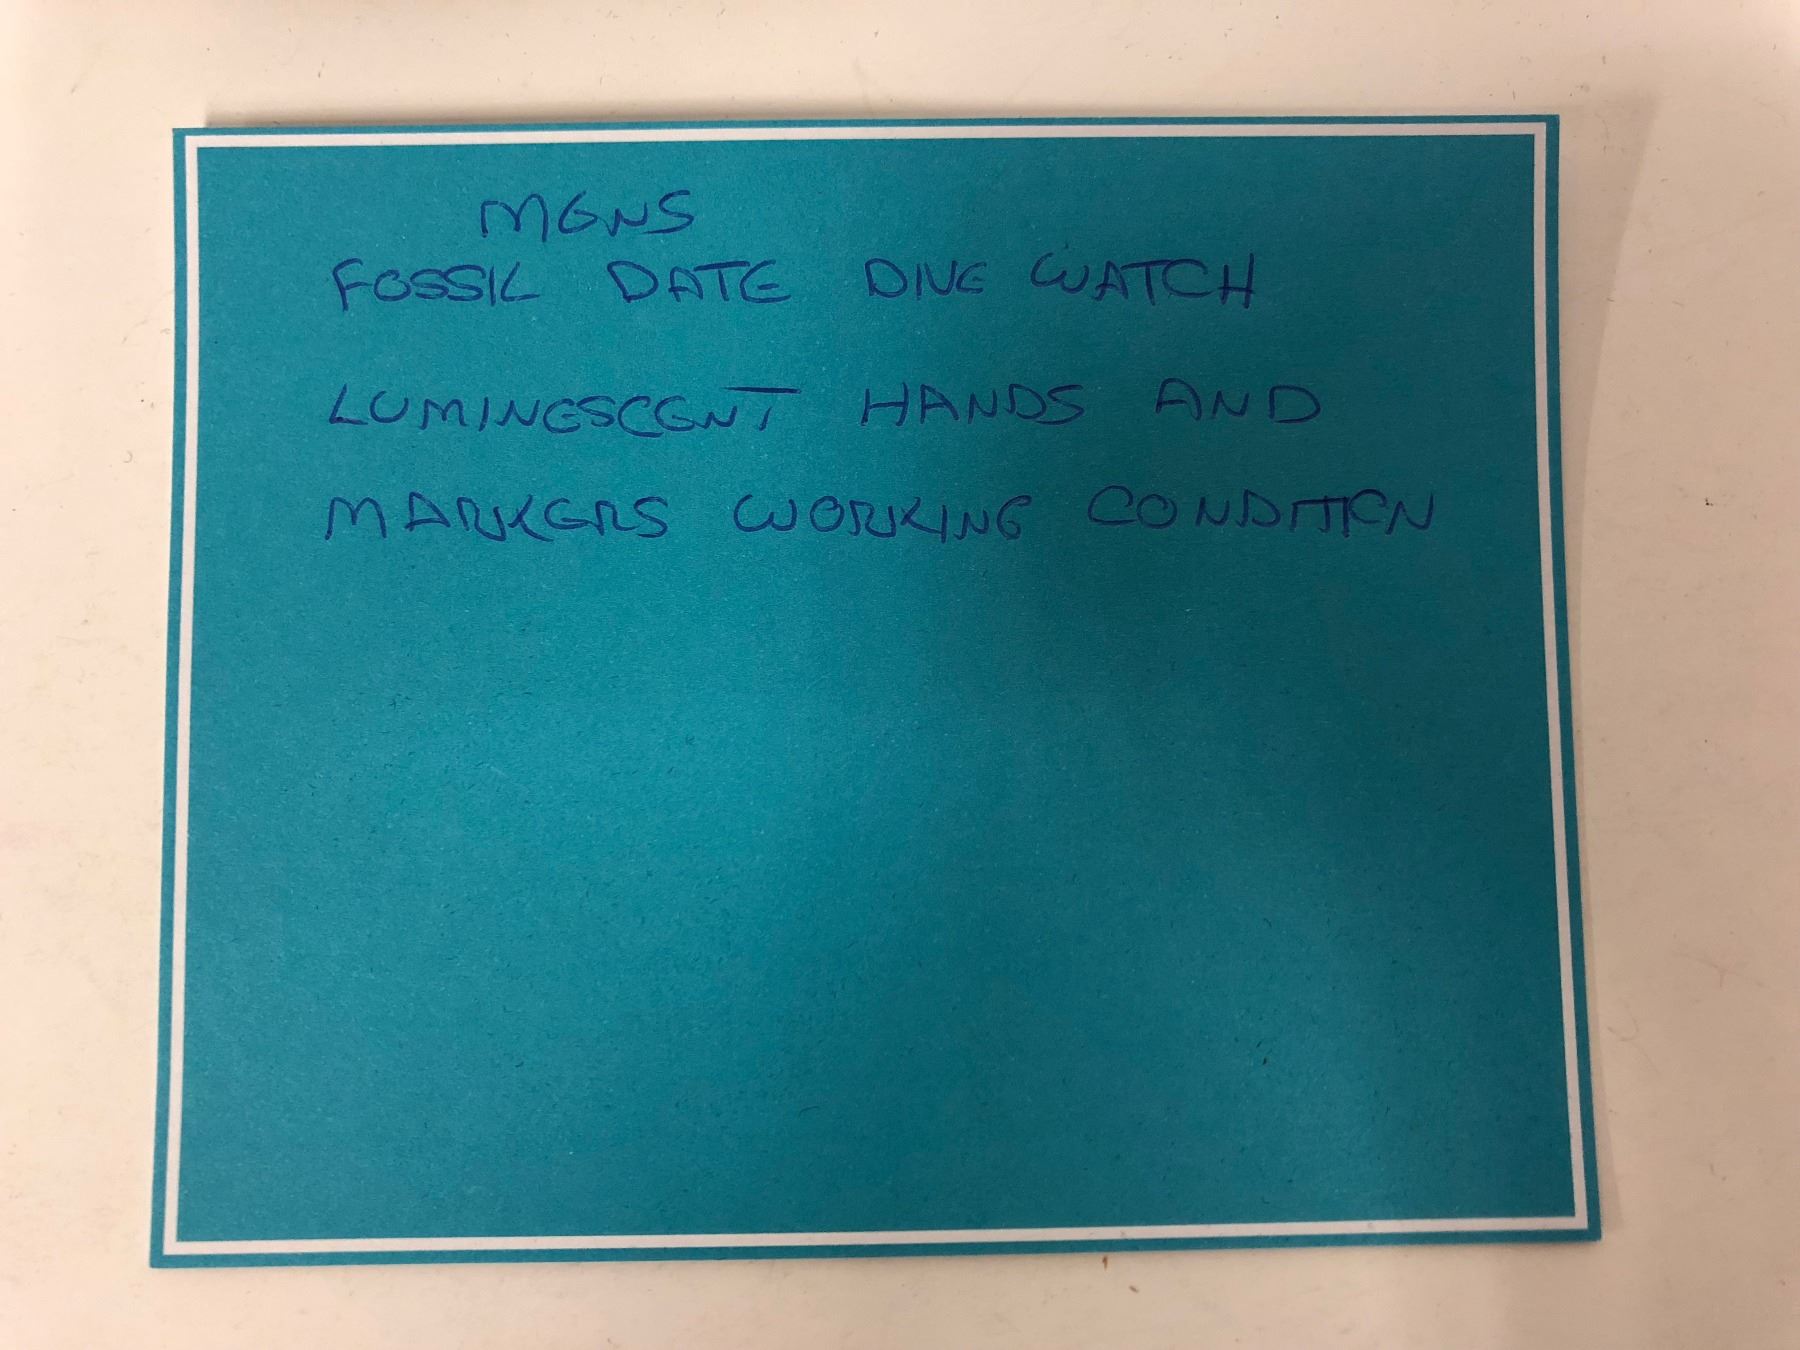 MENS
FOSSIL DATE DIVE WATCH
LUMINESCENT HANDS AND
MARKERS WORKING CONDITION